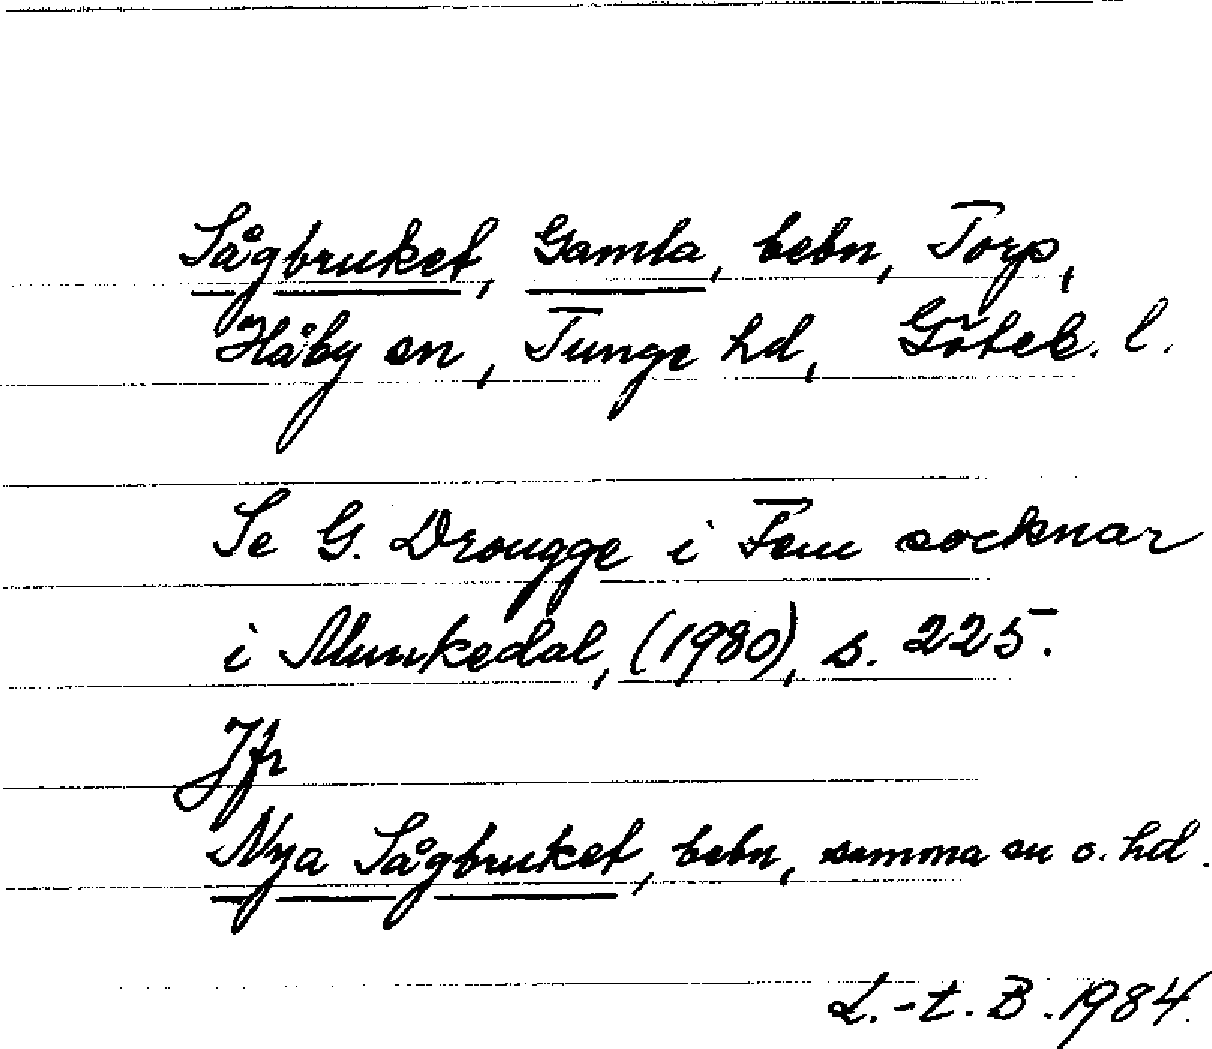 Sågbruket, Gamla, bebn, Torp,
Håby sn, Tunge hd, Göteb. l.
Se G. Drougge i Fem socknar
i Munkedal, (1980), s. 225.
Jfr
Nya Sågbruket, bebn, samma sn o. hd.
L.-t. B. 1984.